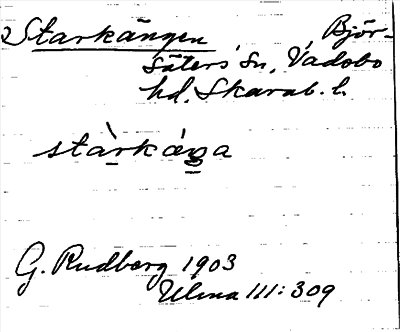 Starkängen Björ-
säters Sn, Vadsbo
hd, Skarab. l.
stàrkæŋa
G. Rudberg 1903
Ulma 111:309